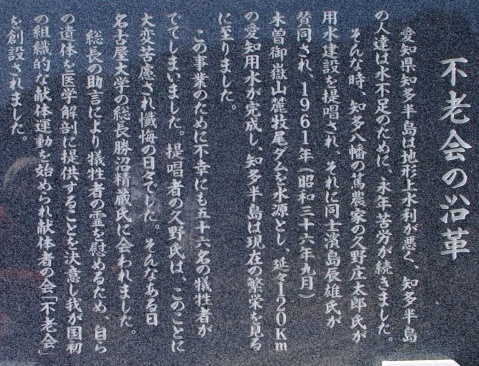 不老会の沿革
愛知県知多半島は地形上水利が悪く、知多半島
の人達は水不足のために、永年苦労が続きました。
そんな時、知多八幡の篤農家の久野庄太郎氏が
用水建設を提唱され、それに同士濱島辰雄氏が
賛同され、1961年(昭和三十六年九月)
木曽御嶽山麓牧尾ダムを水源とし、延々120Km
の愛知用水が完成し、知多半島は現在の繁栄を見る
に至りました。
この事業のために不幸にも五十六名の犠牲者が
でてしまいました。提唱者の久野氏は、このことに
大変苦慮され懺悔の日々でした。そんなある日
名古屋大学の総長勝沼精蔵氏に会われました。
総長の助言により犠牲者の霊を慰めるため、自ら
の遺体を医学解剖に提供することを決意し我が国初
の組織的な献体運動を始められ献体者の会「不老会」
を創設されました。